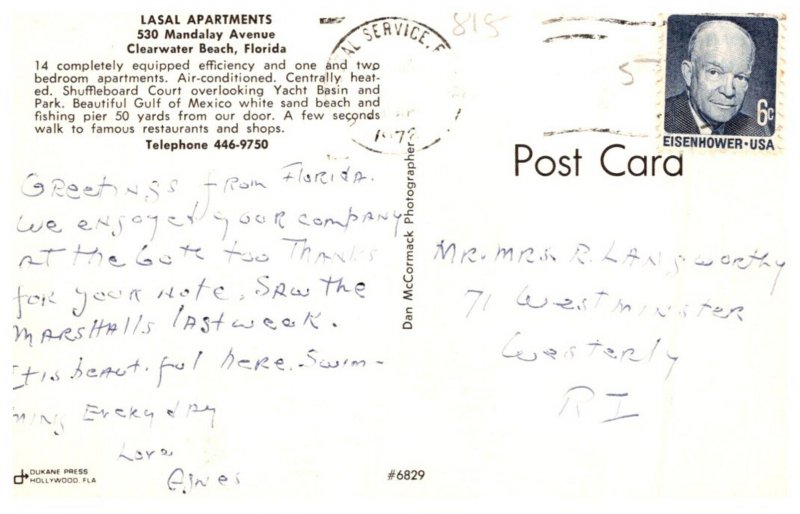 LASAL APARTMENTS
530 Mandalay Avenue
Clearwater Beach, Florida
14 completely equipped efficiency and one and two
bedroom apartments. Air-conditioned. Centrally heat-
ed. Shuffleboard Court overlooking Yacht Basin and
Park. Beautiful Gulf of Mexico white sand beach and
fishing pier 50 yards from our door. A few seconds
walk to famous restaurants and shops.
Telephone 446-9750
Greetings from Florida.
We enjoyed your company
at the Gate too Thanks
for your note. Saw the
Marshalls last week.
It is beautiful here. Swim-
ming Every day
Love
Agnes
DUKANE PRESS
HOLLYWOOD, FLA
Dan McCormack Photographer
#6829
AL SERVICE, F
1972
815
5
6c
EISENHOWER·USA
Post Card
Mr. Mrs R. Langworthy
71 Westminster
Westerly
R I